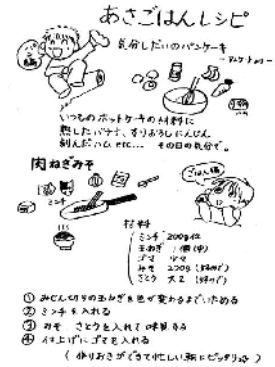 あさごはんレシピ
気分しだいのパンケーキ
いつものホットケーキの材料に
熟したバナナ、すりおろしにんじん
刻んだハム etc... その日の気分で。
肉ねぎみそ
ごはん編
ミンチ
材料
ミンチ 200g位
玉ねぎ 1個(中)
ゴマ 少々
みそ 220g (好みで)
さとう 大2 (好みで)
① みじん切りの玉ねぎを色が変わるまでいためる
② ミンチを入れる
③ みそ、さとうを入れて味見する
④ 仕上げにゴマを入れる
(作りおきができて忙しい朝にピッタリ☆)